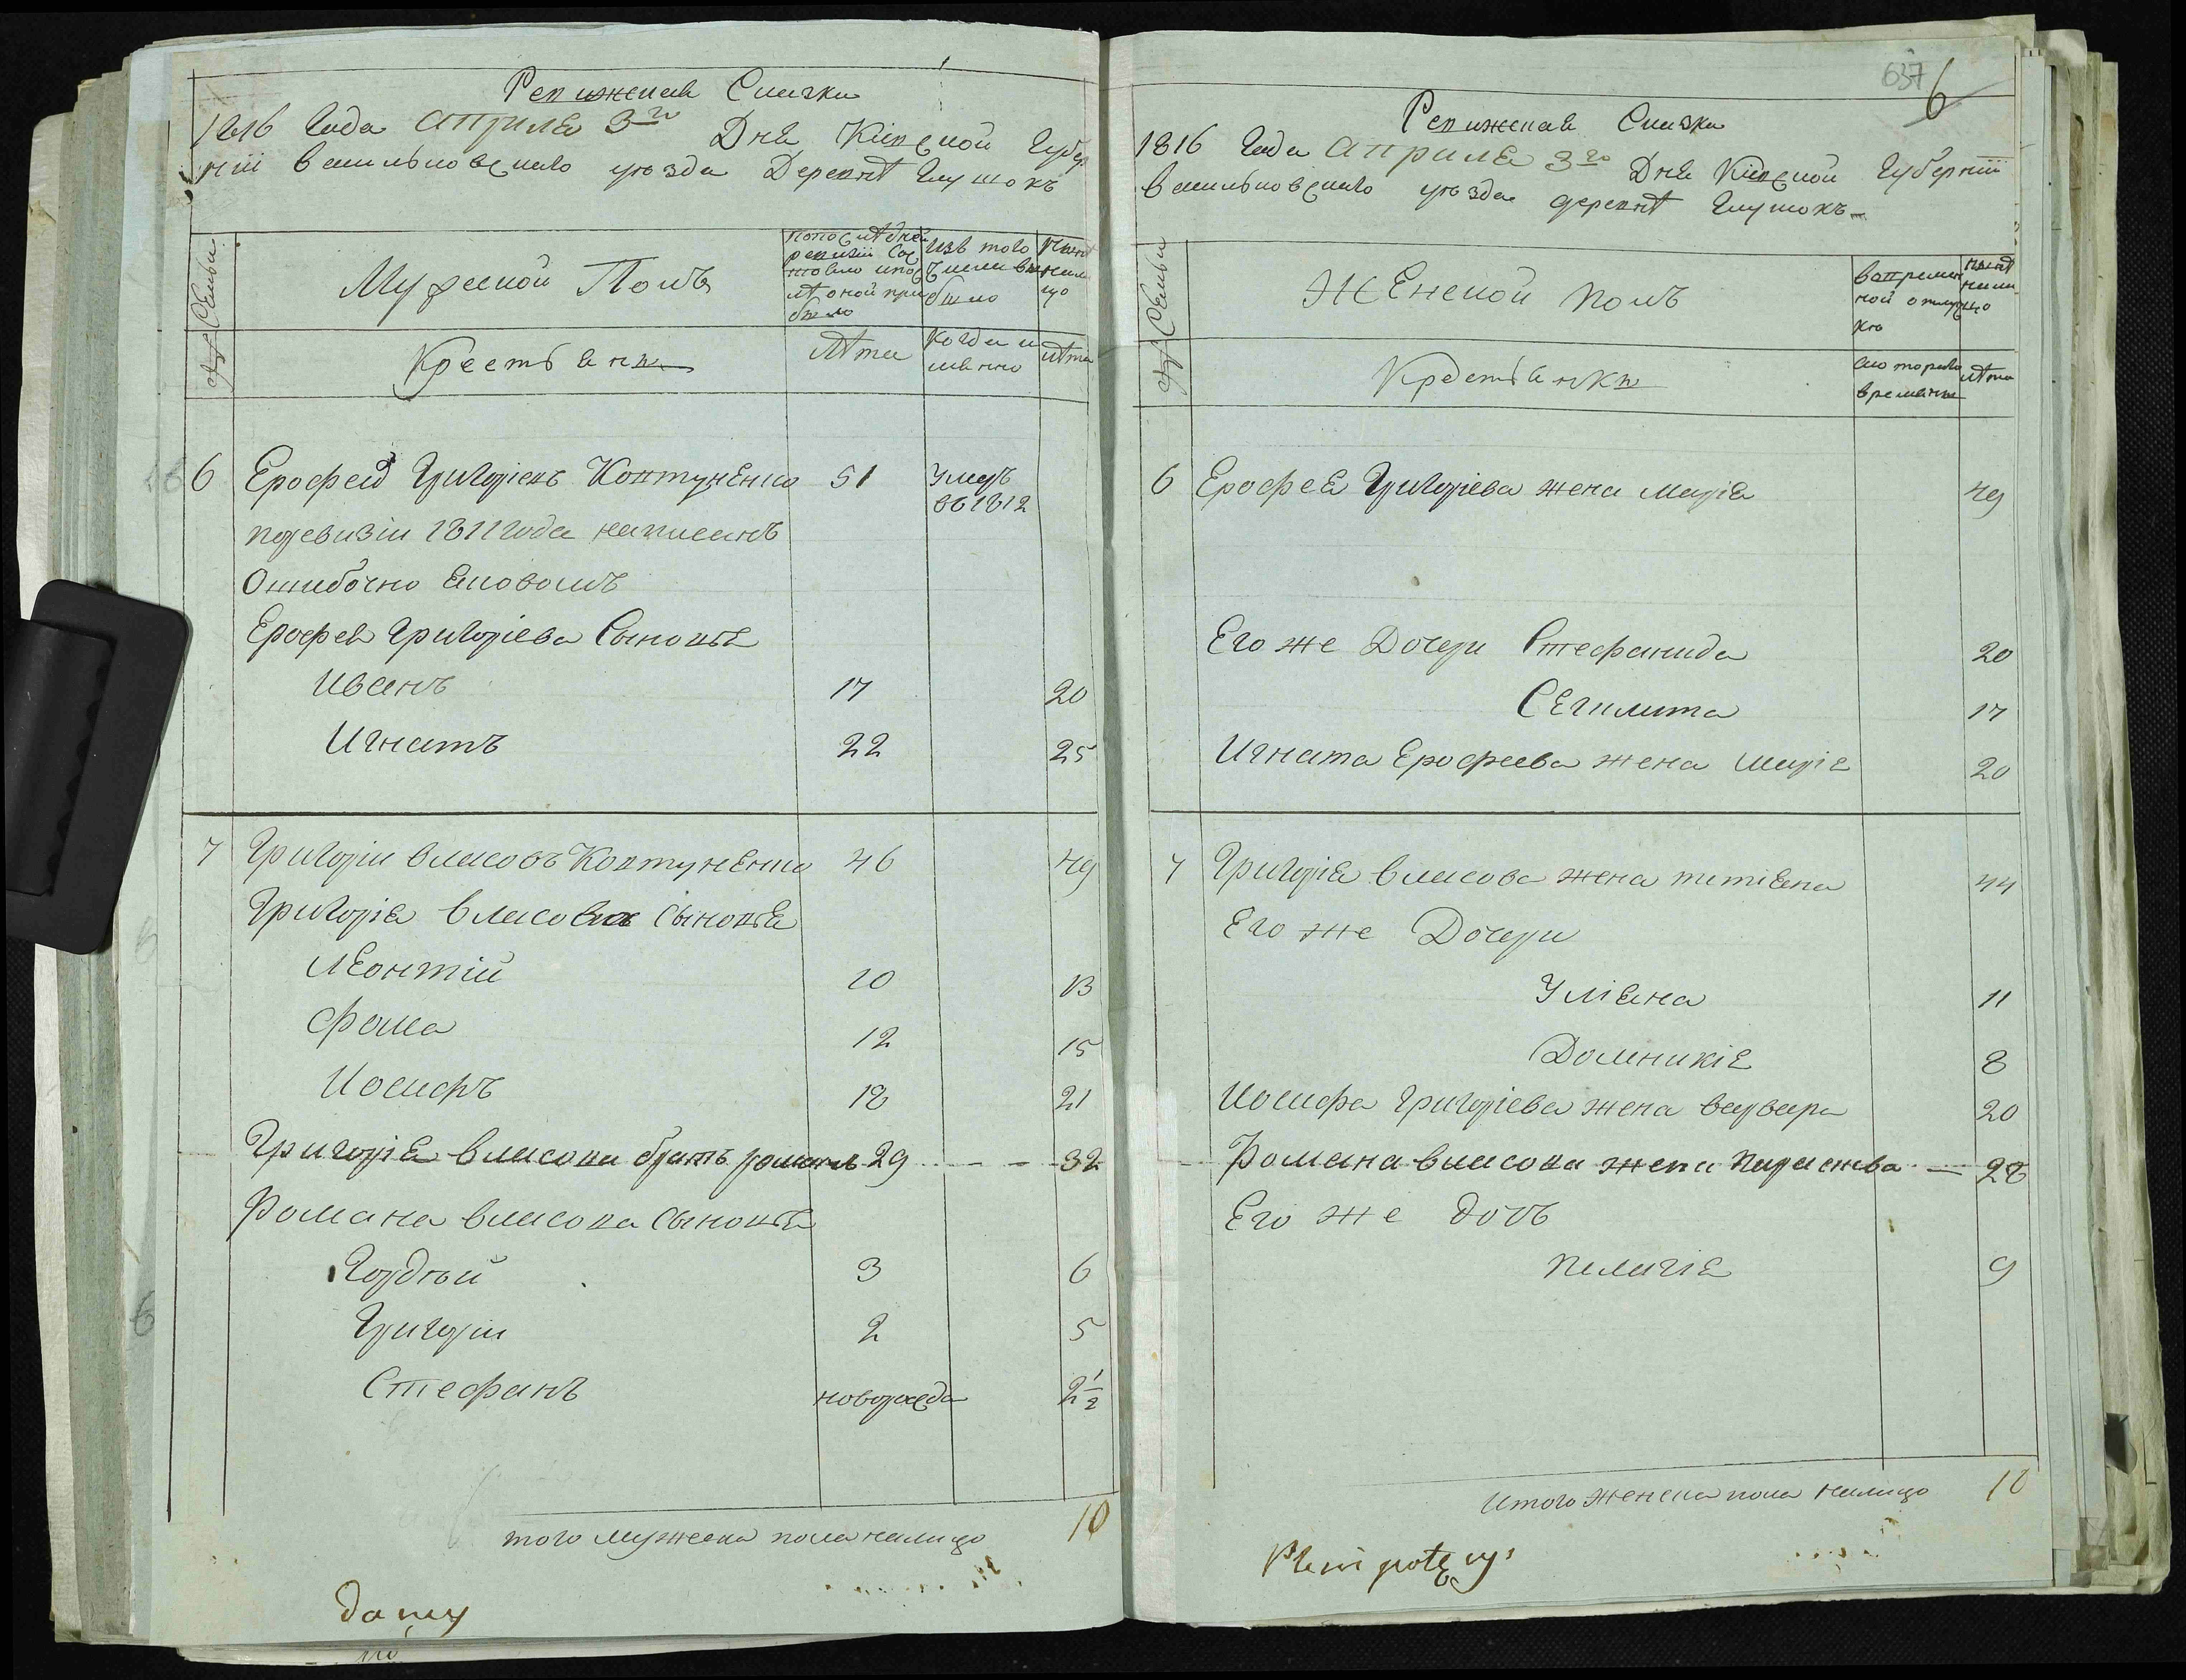 Ревижная Сказка
1816 Года Априля 3го Дня Кіевской Губер
ніи васильковскаго уѣзда Деревнѣ Глушокъ
№ Семьи
Мужеской Полъ
Крестьяне
попослѣдней
ревизіи Сос
тояло и пос
лѣ оной при
было
лѣта
Изъ того
Числа вы
было
когда и
менно
нынѣ
нали
цо
лѣта
6 Ерофей Григоріевъ Ковтуненко 51 Умеръ
въ 1812
поревизіи 1811 года написанъ
Ошибочно Яковомъ
Ерофея Григоріева Сыновья
Иванъ 17 20
Игнатъ 22 25
7 Григорій власовъ Ковтуненко 46 49
Григорія власова Сыновья
Леонтій 10 13
Фома 12 15
Иосифъ 18 21
Григорія власова братъ романъ 29 32
Романа власова Сыновья
Гордѣй 3 6
Григорій 2 5
Стефанъ новорожда 2 1/2
того мужеска пола налицо 10
637 6
Ревижная Сказка
1816 Года Априля 3го Дня Кіевской Губерніи
васильковскаго уѣзда деревнѣ Глушокъ
№ Семьи
Женской полъ
Крестьянки
вовремен
ной отлуч
кѣ
скоторого
времяни
нынѣ
нали
цо
лѣта
6 Ерофея Григоріева жена марія 49
Его же Дочери Стефанида 20
Сегклита 17
Игната Ерофеева жена марія 20
7 Григорія власова жена татіяна 44
Его же Дочери
Уліяна 11
Домникія 8
Иосифа Григоріева жена варвара 20
Романа власова жена параскева 28
Его же дочъ
пелагія 9
Итого женска пола налицо 10